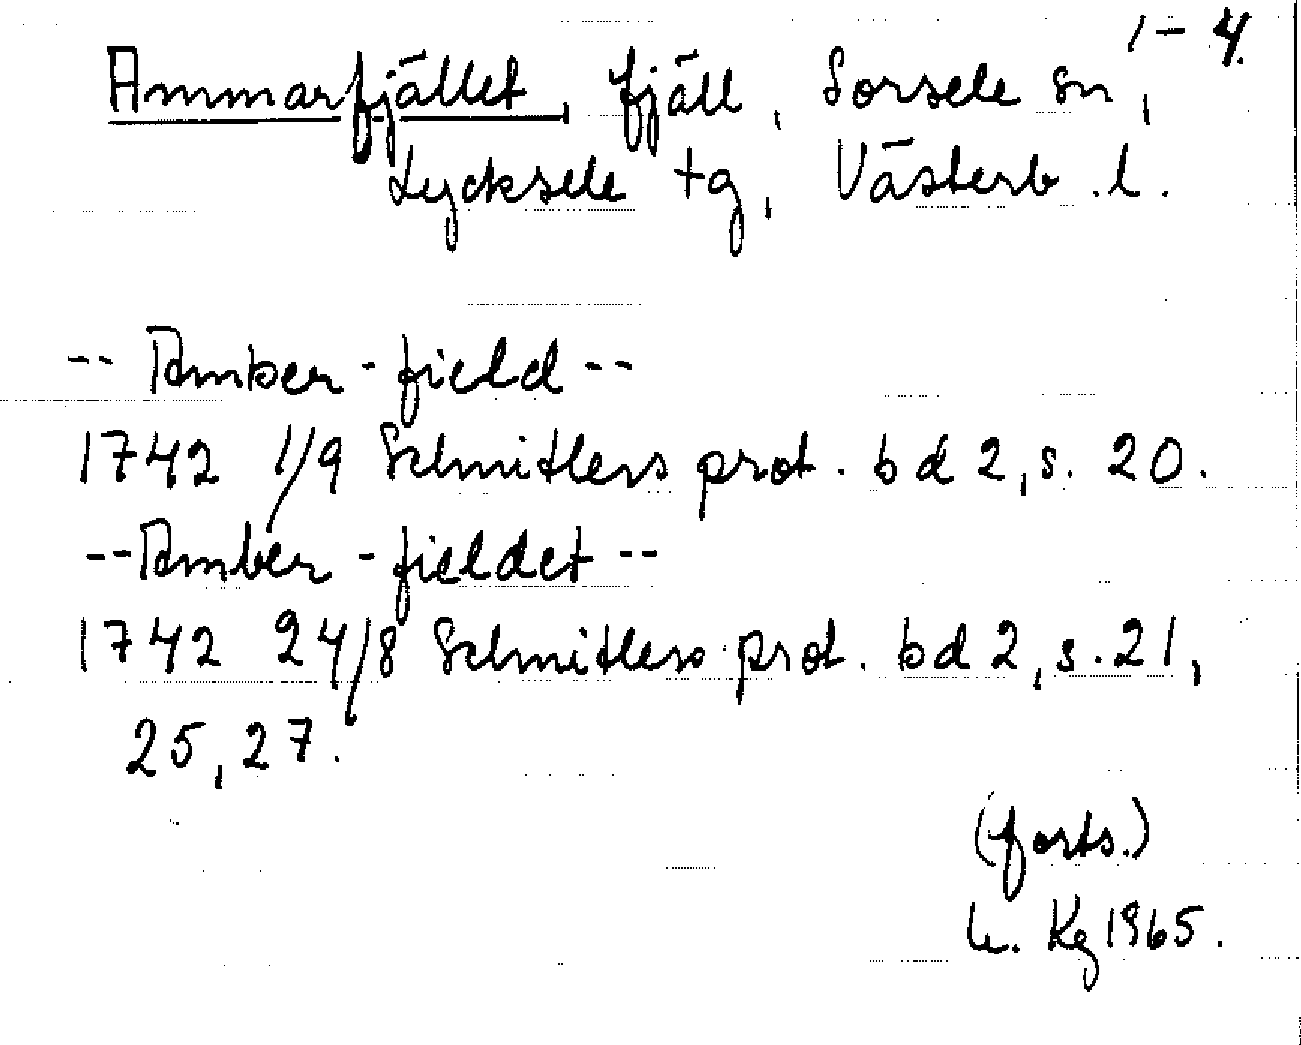 1-4.
Ammarfjället, fjäll, Sorsele sn,
Lycksele tg, Västerb.l.
-- Amber-field --
1742 1/9 Schnitlers prot. bd 2, s. 20.
-- Amber-fieldet --
1742 24/8 Schnitlers prot. bd 2, s. 21,
25, 27.
(forts.)
Kg 1965.